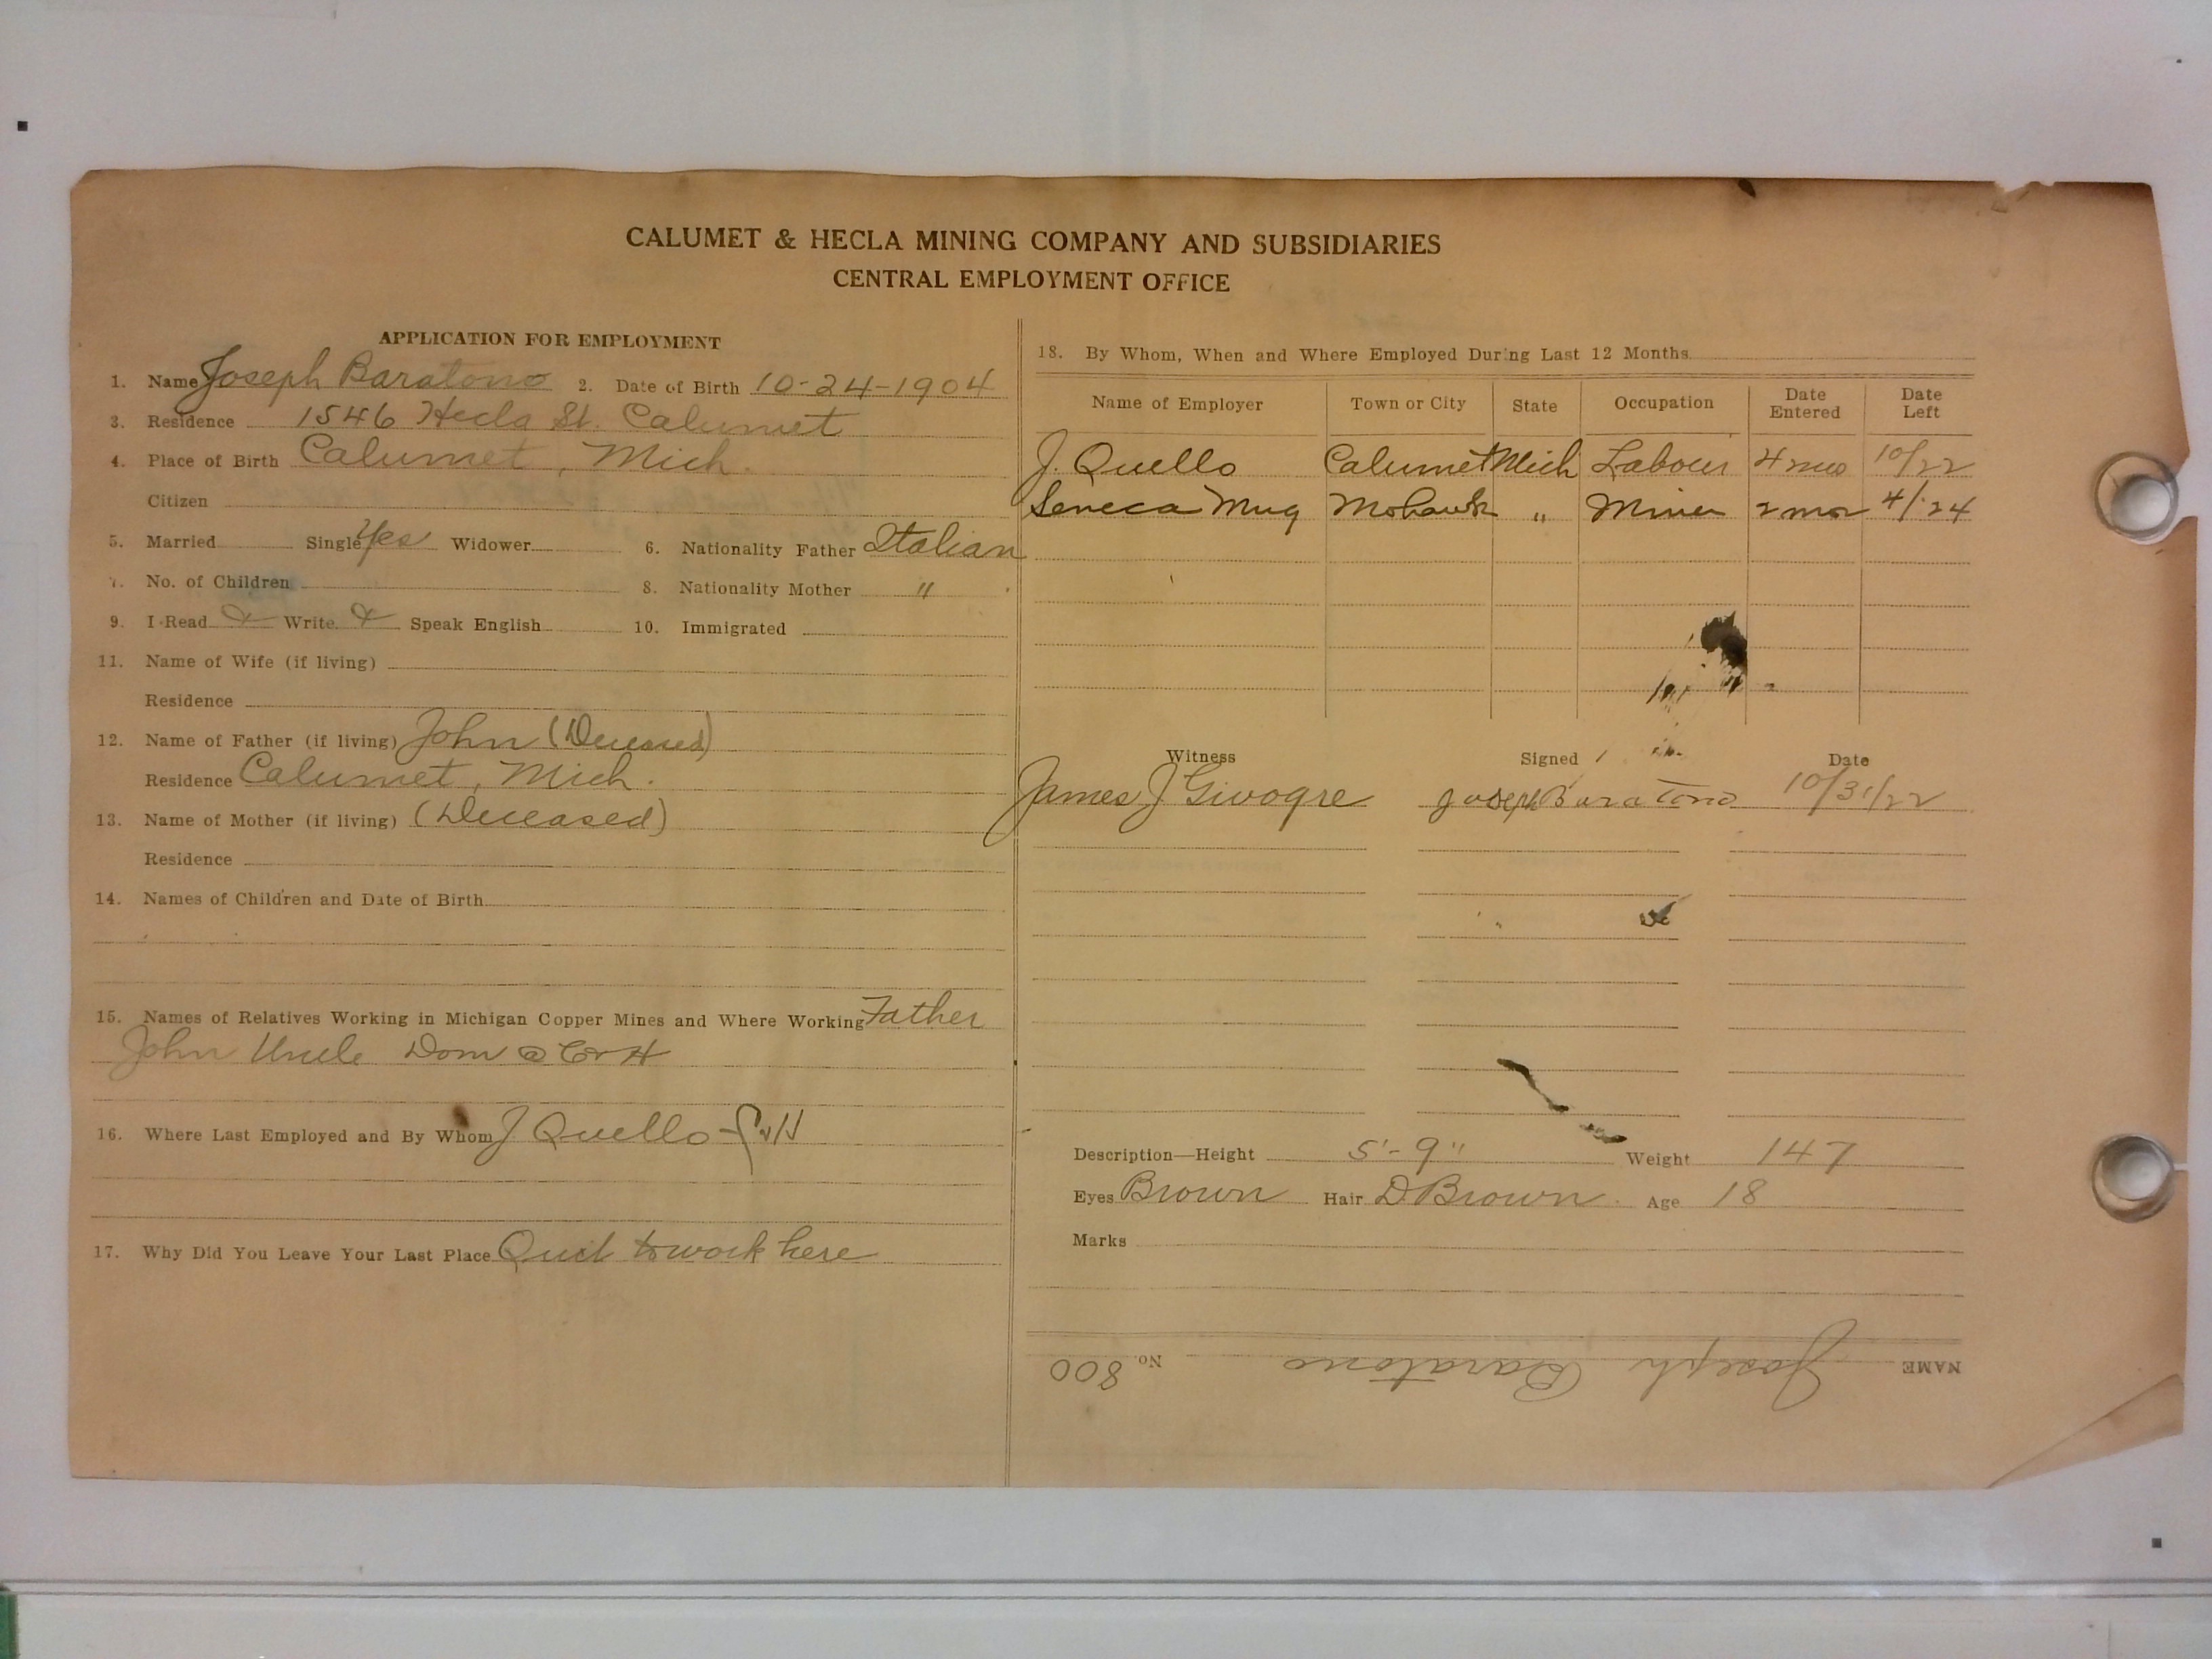 CALUMET & HECLA MINING COMPANY AND SUBSIDIARIES
CENTRAL EMPLOYMENT OFFICE
APPLICATION FOR EMPLOYMENT
1. Name Joseph Baratono 2. Date of Birth 10-24-1904
3. Residence 1546 Hecla St. Calumet
4. Place of Birth Calumet, Mich.
Citizen
5. Married Single Yes Widower 6. Nationality Father Italian
7. No. of Children 8. Nationality Mother "
9. I Read & Write & Speak English 10. Immigrated
11. Name of Wife (if living)
Residence
12. Name of Father (if living) John (Deceased)
Residence Calumet, Mich.
13. Name of Mother (if living) (Deceased)
Residence
14. Names of Children and Date of Birth
15. Names of Relatives Working in Michigan Copper Mines and Where Working Father
John Uncle Dom @ C & H
16. Where Last Employed and By Whom J Quello
17. Why Did You Leave Your Last Place Quit to work here
18. By Whom, When and Where Employed During Last 12 Months
Name of Employer Town or City State Occupation Date Entered Date Left
J. Quello Calumet Mich Labour 4 mos 10/22
Seneca Mng Mohawk " Miner 2 mos 4/24
Witness Signed Date
James J Joseph Baratono 10/31/22
Description—Height 5'-9" Weight 147
Eyes Brown Hair D Brown. Age 18
Marks
NAME Joseph Baratono No. 800